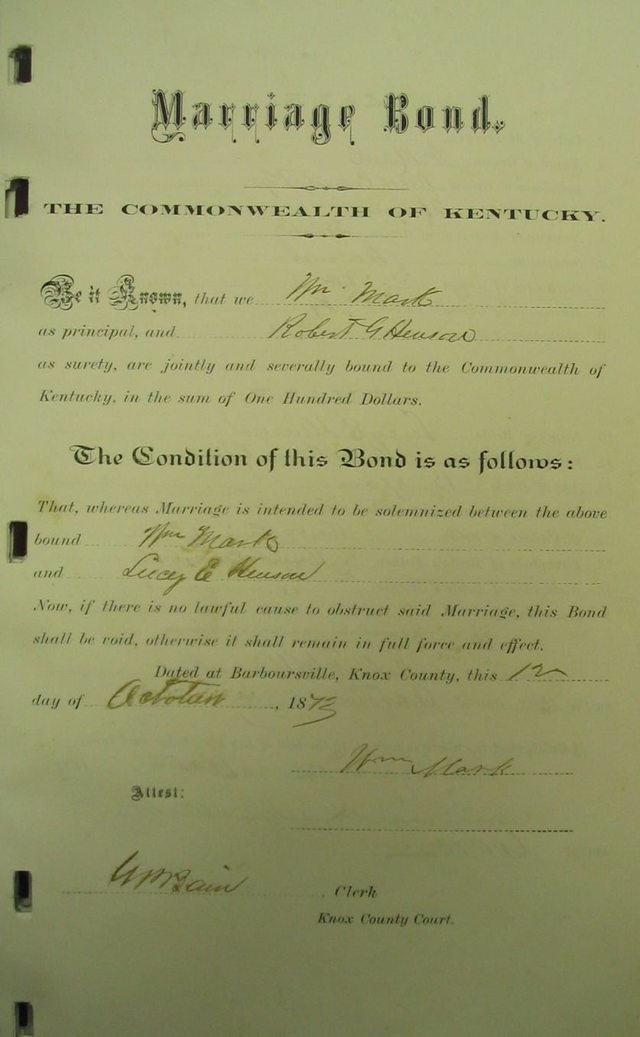 Marriage Bond.
THE COMMONWEALTH OF KENTUCKY.
Be it Known, that we Wm Mark
as principal, and Robert G Henson
as surety, are jointly and severally bound to the Commonwealth of
Kentucky, in the sum of One Hundred Dollars.
The Condition of this Bond is as follows:
That, whereas Marriage is intended to be solemnized between the above
bound Wm Marks
and Lucy E Henson
Now, if there is no lawful cause to obstruct said Marriage, this Bond
shall be void, otherwise it shall remain in full force and effect.
Dated at Barboursville, Knox County, this 12
day of October, 1873
Wm Mark
Attest:
Bain, Clerk
Knox County Court.